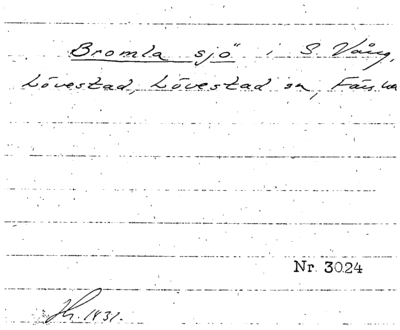 Bromla sjö" i S. Vång,
Lövestad, Lövestad sn, Färs
Nr. 3024
1931.